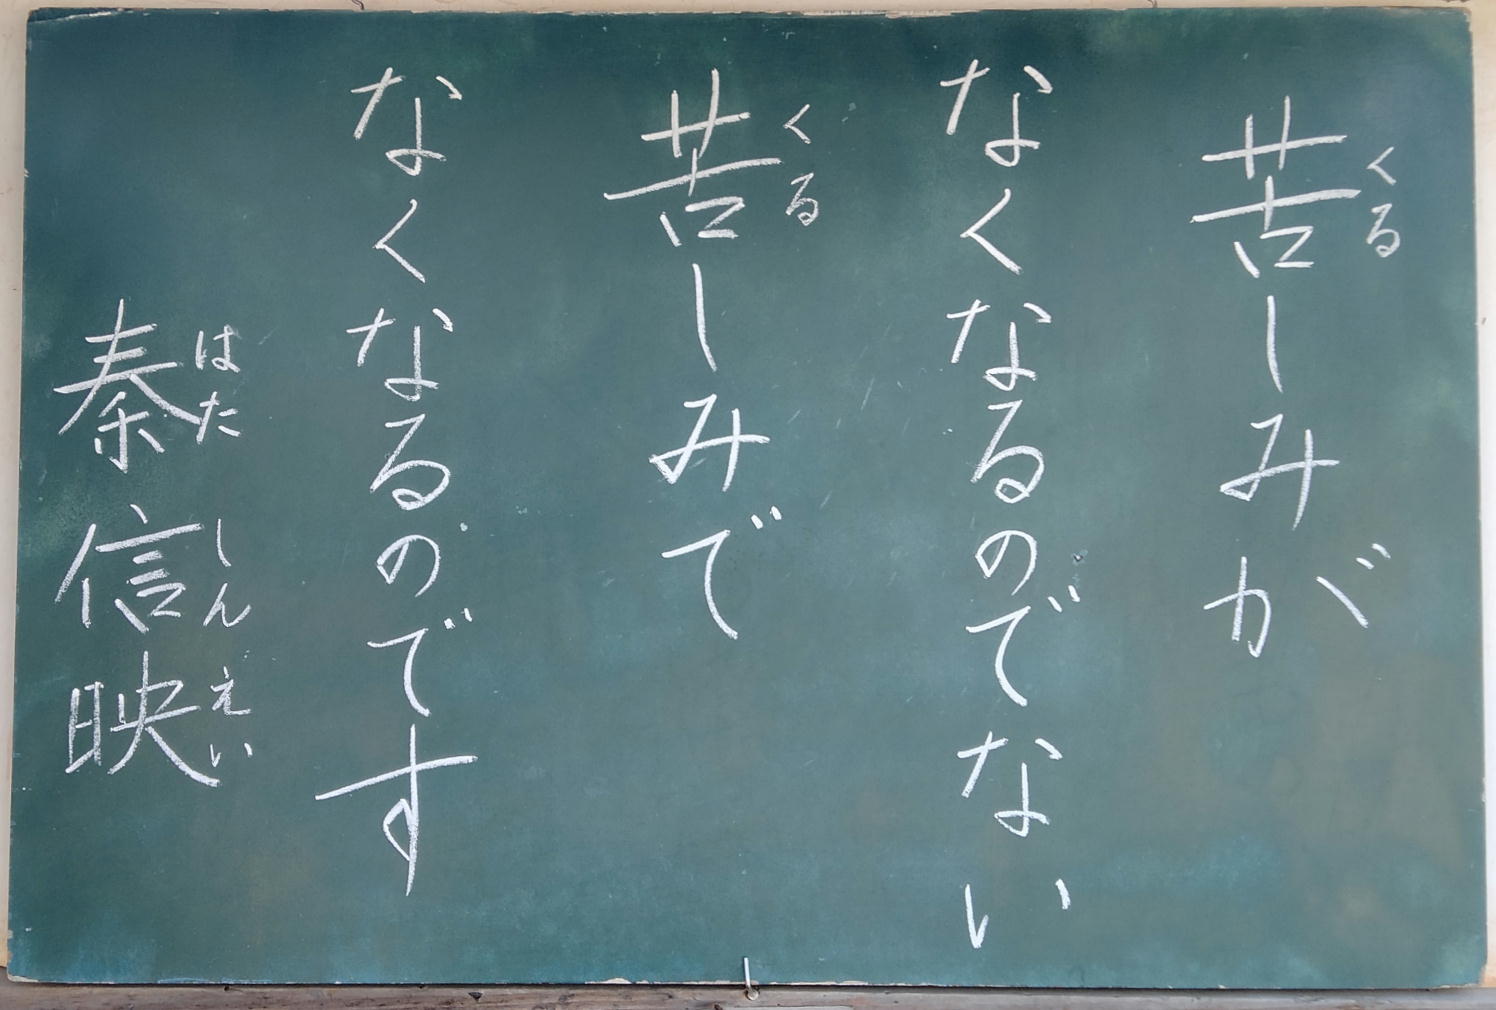 苦しみが
くる
なくなるのでない
苦しみで
くる
なくなるのです
秦信映
はたしんえい